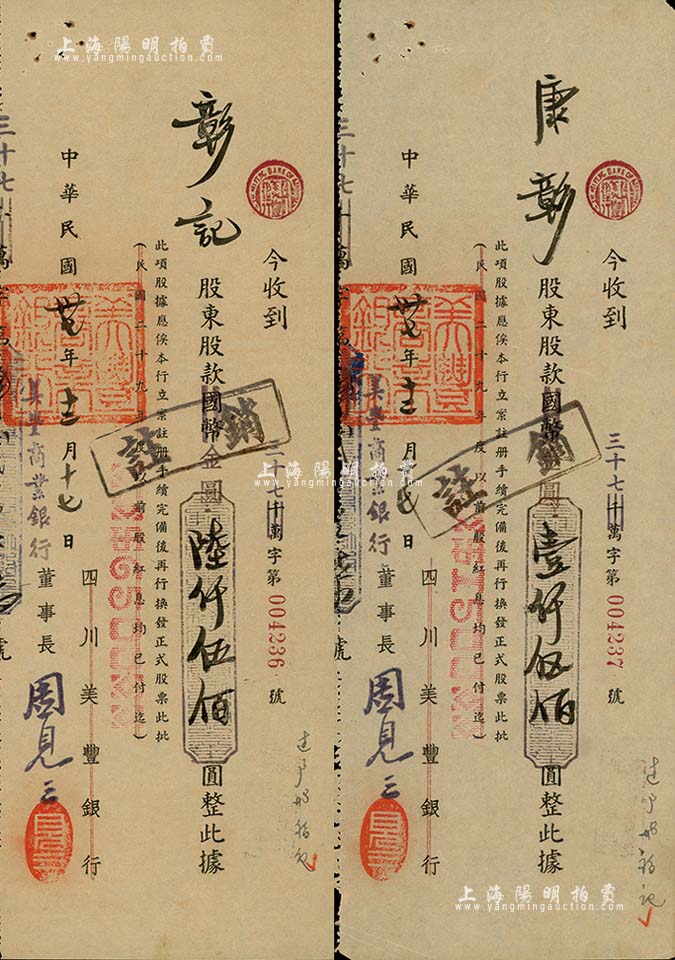 上海陽明拍賣
www.yangmingauction.com
康彰
今收到
股東股款國幣
壹仟伍佰
圓整此據
三十七
萬字第004237號
此項股據應俟本行立案註冊手續完備後再行換發正式股票此批
(民國二十九年度以前股紅息均已付訖)
註銷
中華民國卅七年十二月
日
四川美豐銀行
美豐商業銀行
董事長
周見三
上海陽明拍賣
www.yangmingauction.com
彰記
今收到
股東股款國幣金圓
陸仟伍佰
圓整此據
三十七
萬字第004236號
此項股據應俟本行立案註冊手續完備後再行換發正式股票此批
(民國二十九年度以前股紅息均已付訖)
註銷
中華民國卅七年十二月十七日
四川美豐銀行
美豐商業銀行
董事長
周見三
三十七
號
上海陽明拍賣
www.yangmingauction.com
上海陽明拍賣
www.yangmingauction.com